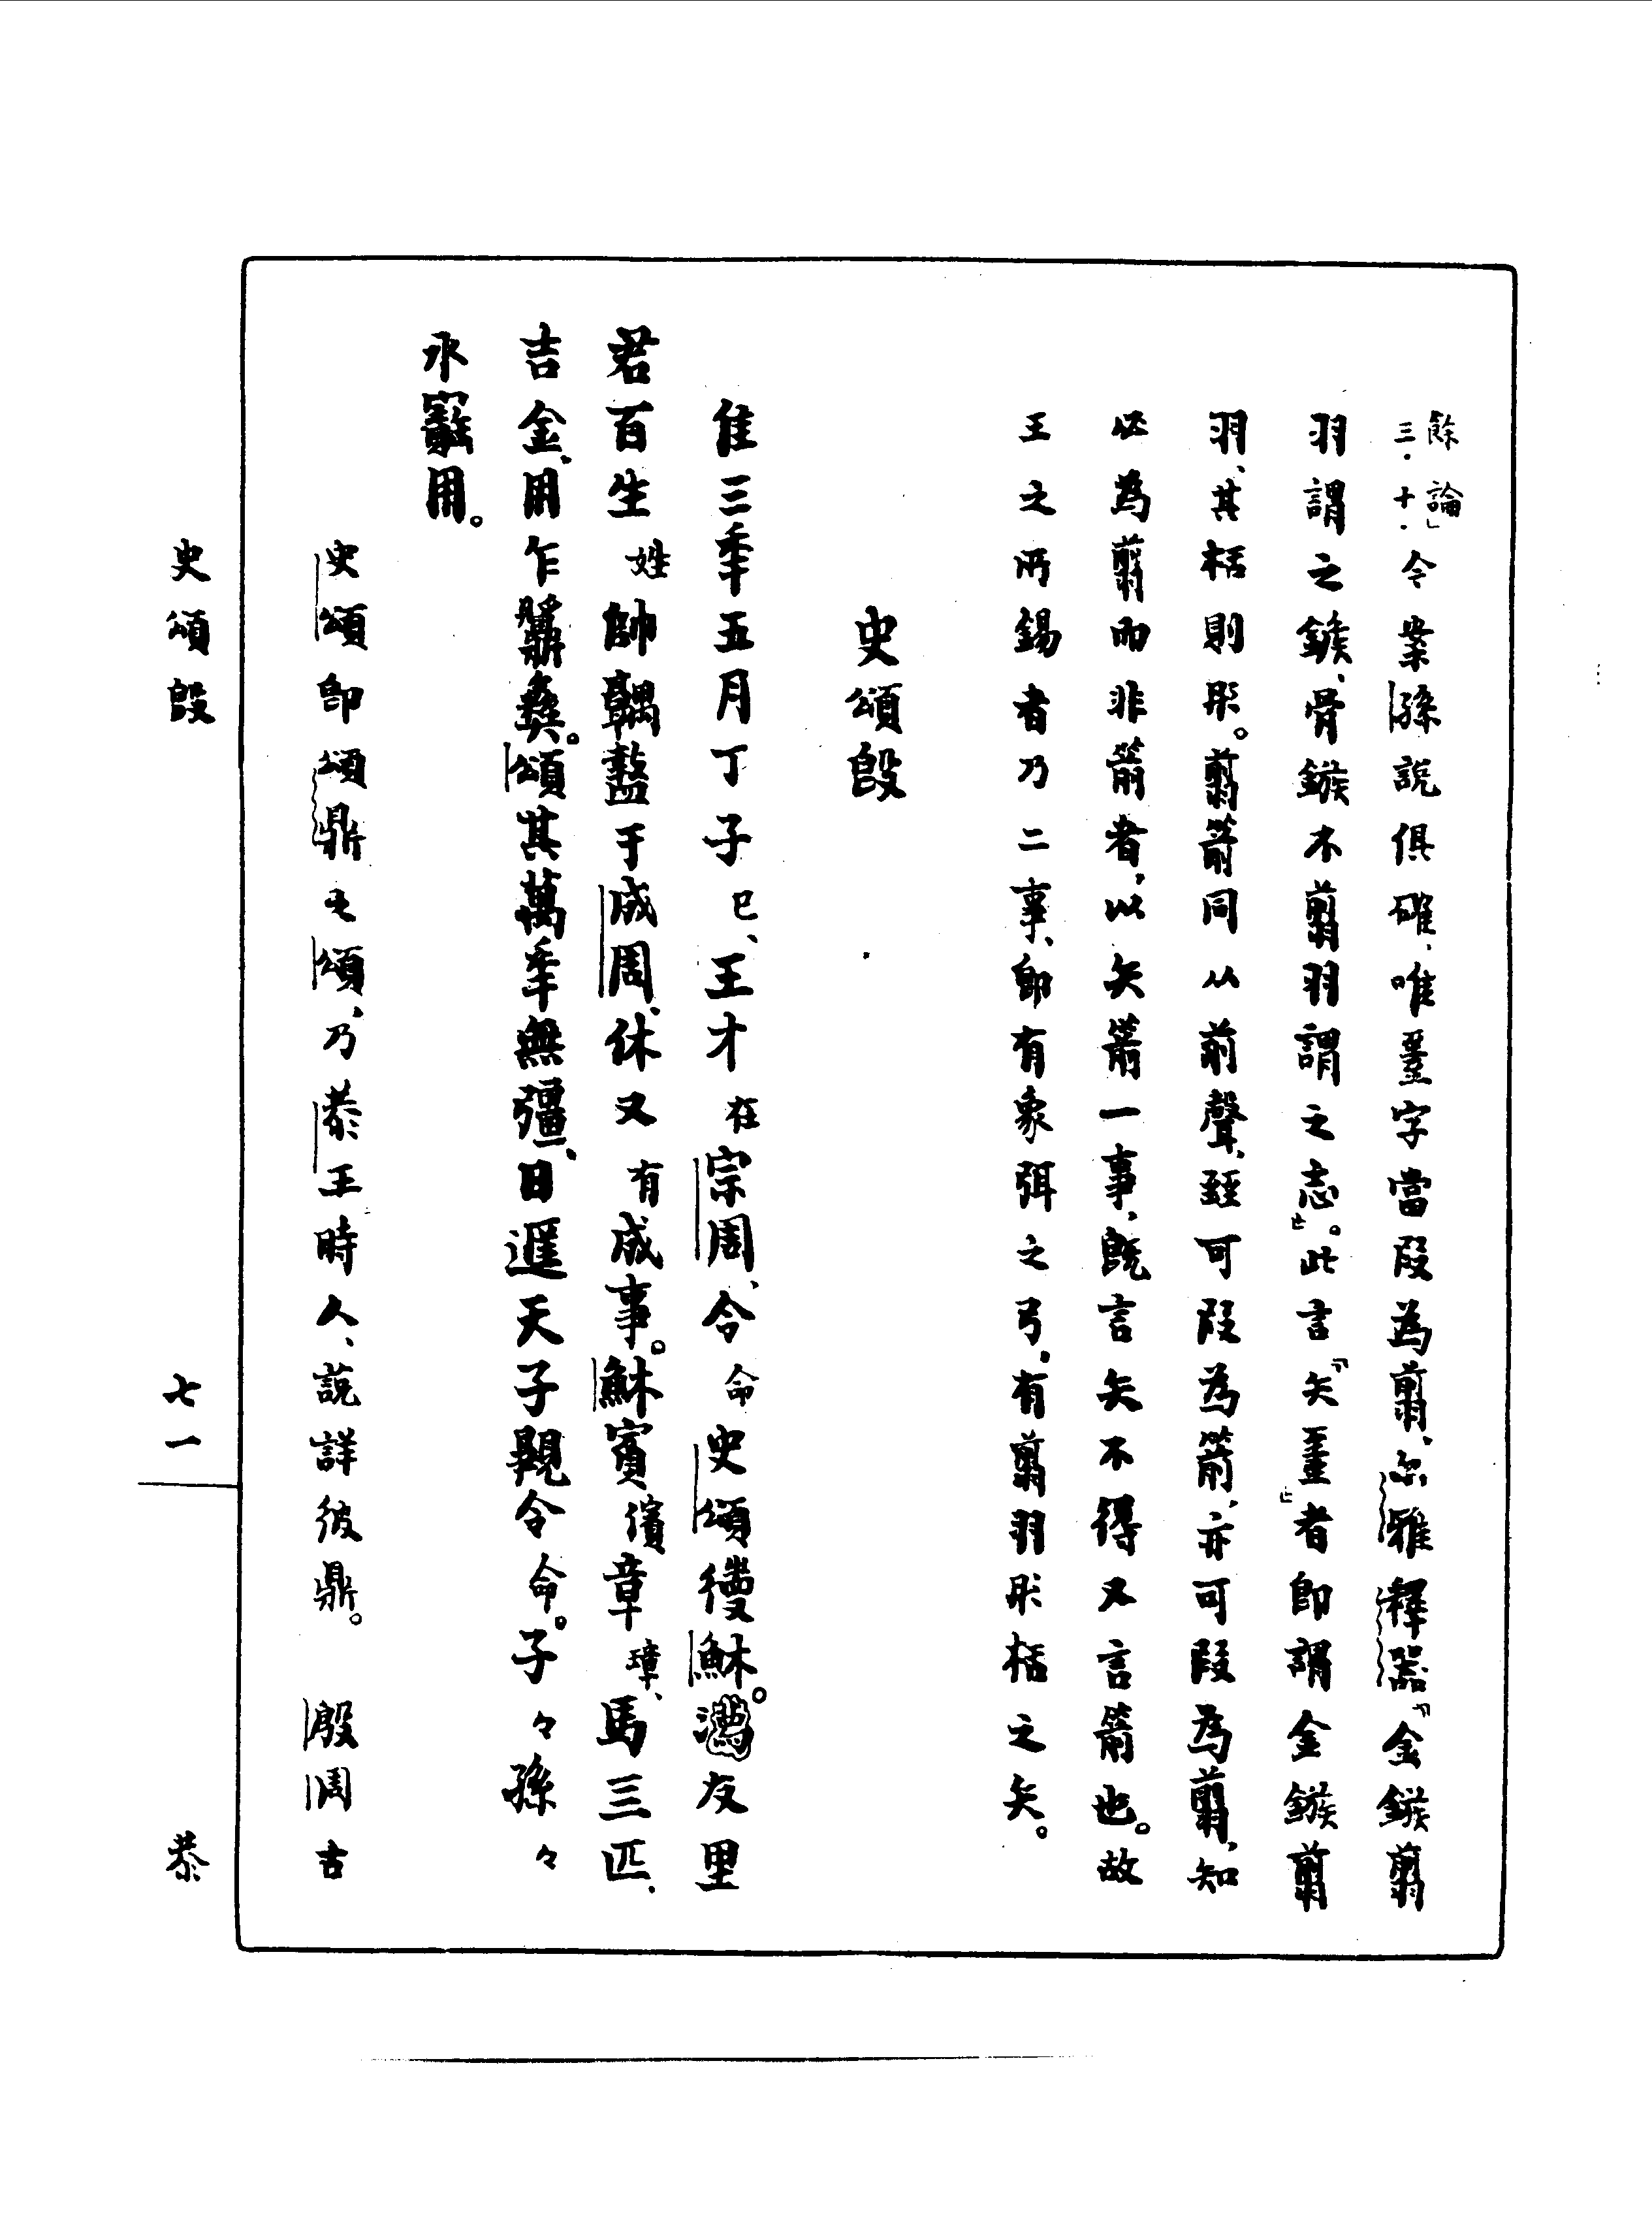 餘論」
三·十·今案孫說俱確，唯臸字當叚為翦，尔雅釋器「金鏃翦
羽謂之鍭，骨鏃不翦羽謂之志」。此言「矢臸」者即謂金鏃翦
羽、其栝則彤。翦箭同从前聲，臸可叚為箭，亦可叚為翦，知
必為翦而非箭者，以矢箭一事，既言矢不得又言箭也。故
王之所錫者乃二事，即有象弭之弓，有翦羽彤栝之矢。
史頌𣪘
隹三年五月丁子巳，王才在宗周，令命史頌䘵穌。友里
君百生姓帥䚘盩于成周，休又有成事。穌賓儐章璋、馬三匹、
吉金，用乍䵼彝。頌其萬年無彊，日𨖴天子䫂令命。子々孫々
永寶用。
史頌即頌鼎之頌，乃恭王時人，說詳彼鼎。殷周古
史頌𣪘
七一
恭